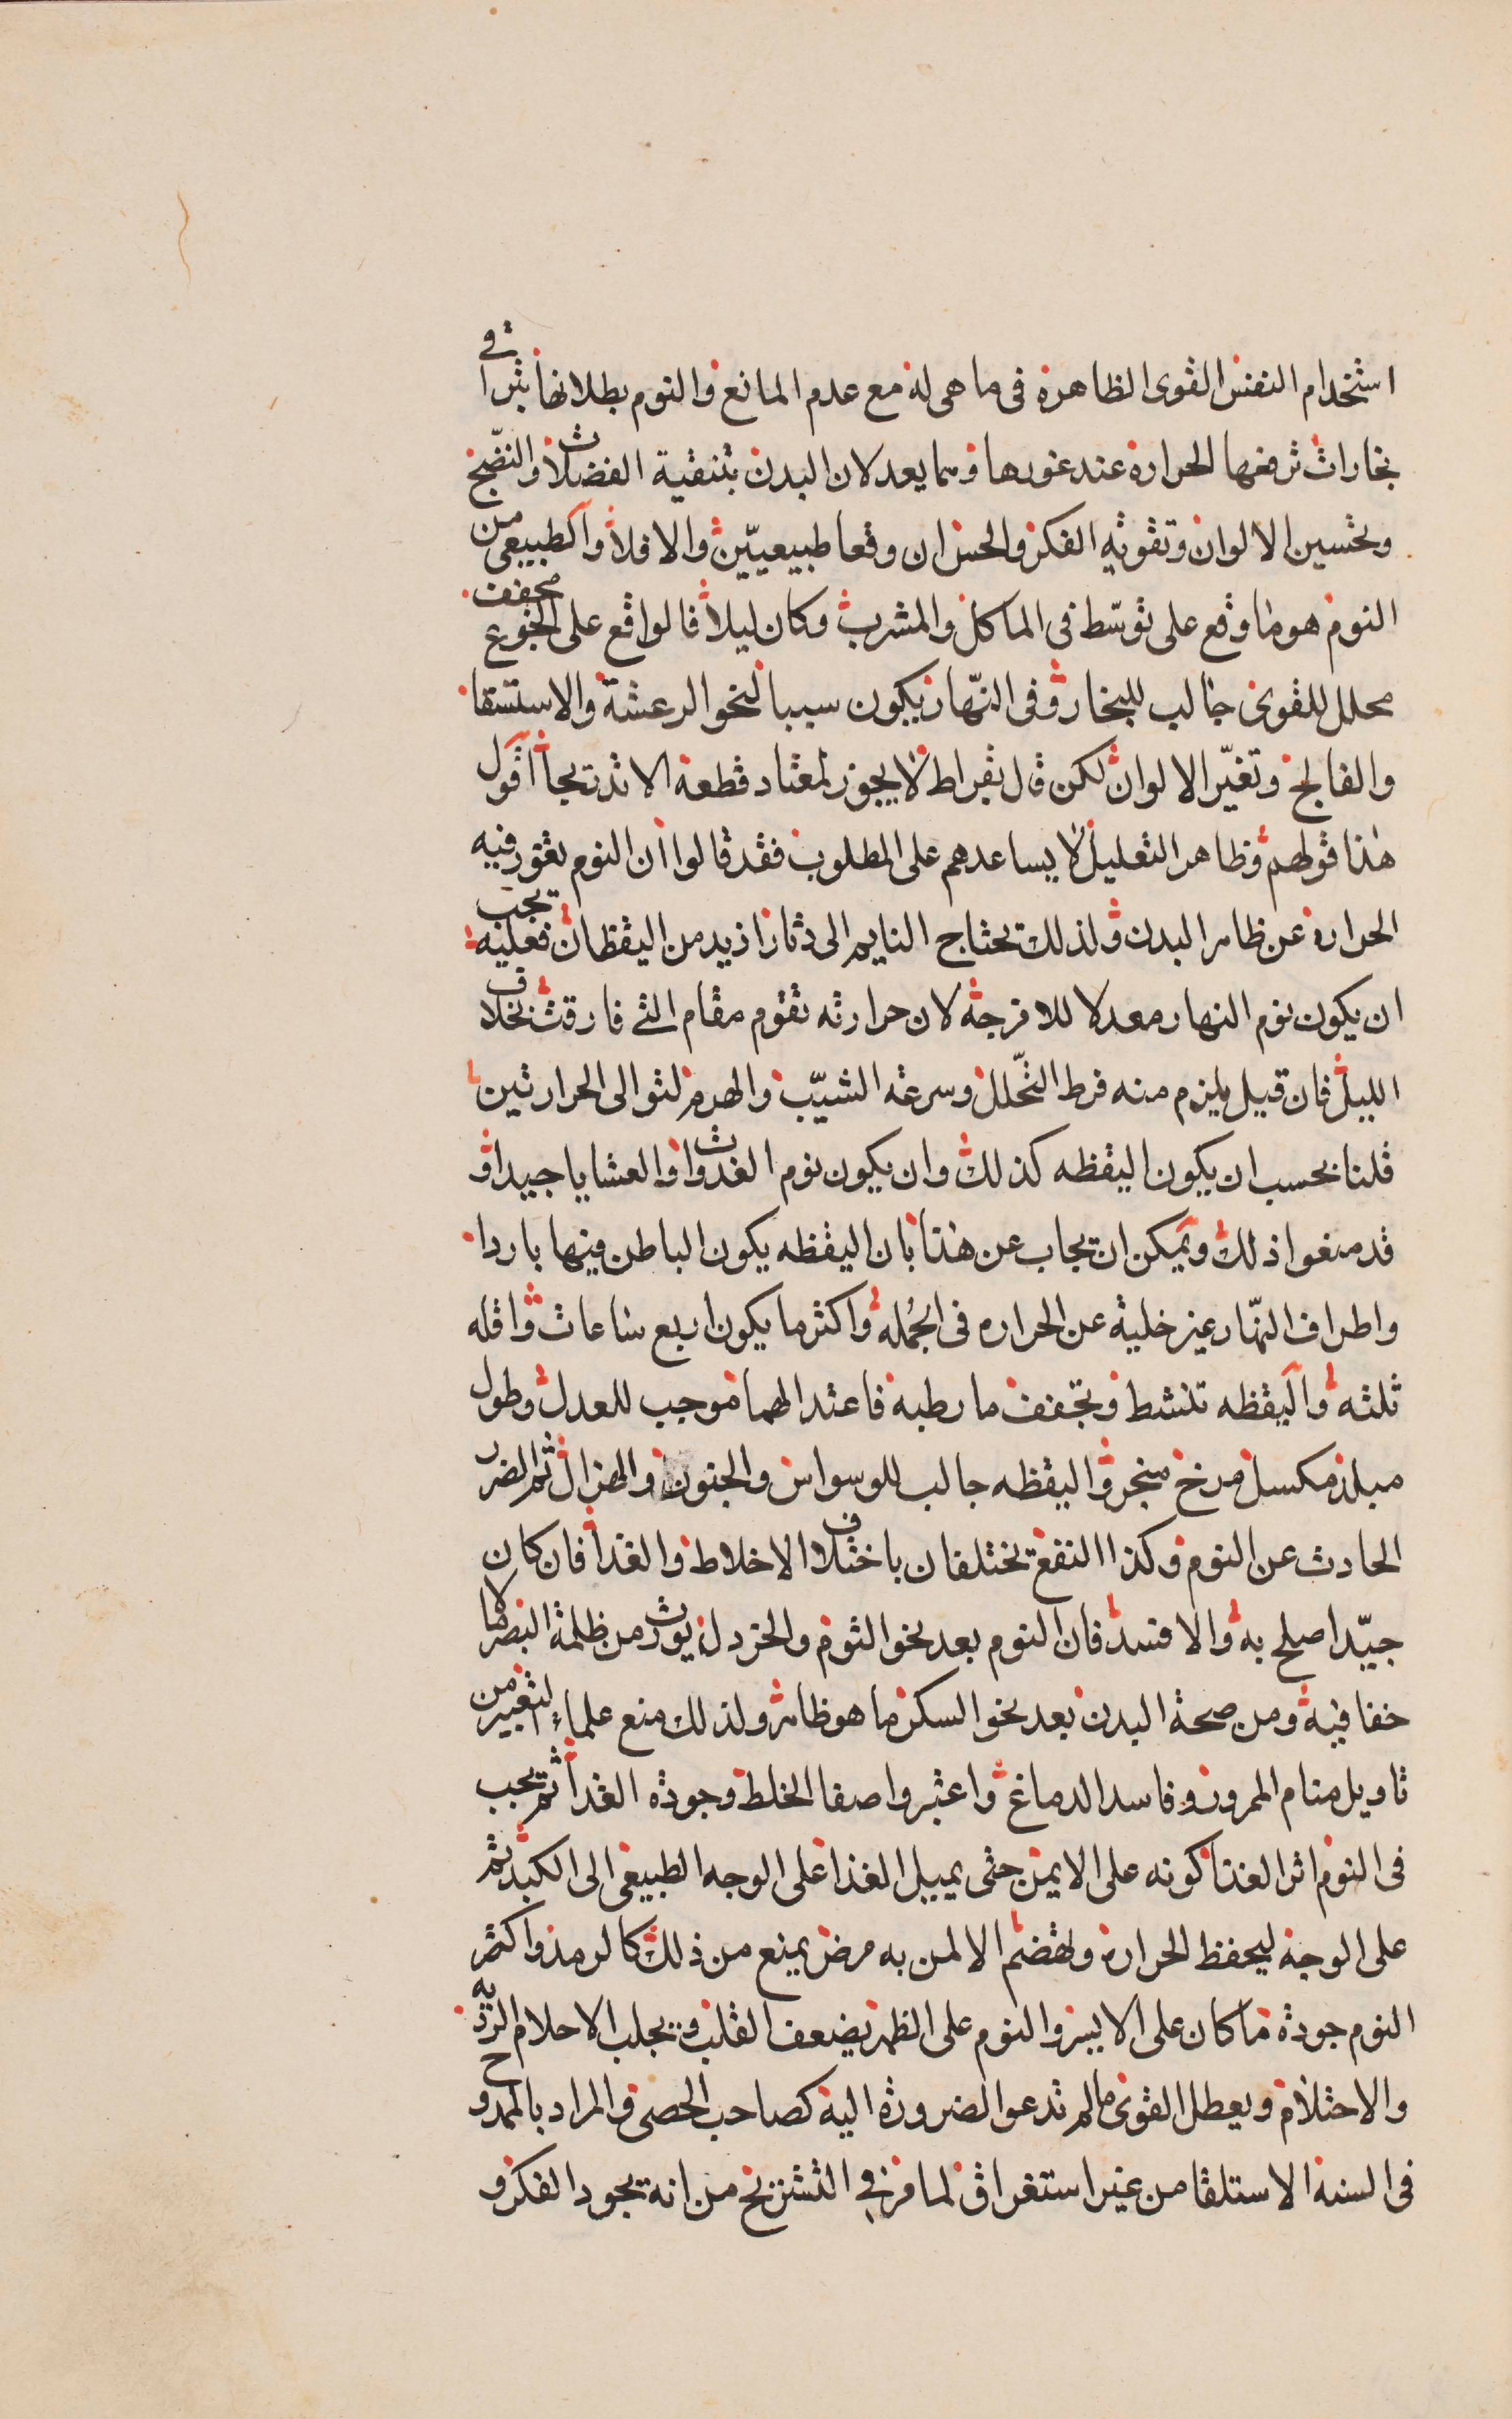 استخدام النفس القوى الظاهرة فى ما هى له مع عدم المانع والنوم بطلانها بتراقى
بخارات ترفعها الحرارة عند غورها وهما يعدلان البدن بتنقية الفضلات والنضج
وتحسين الالوان وتقويه الفكر والحس ان وقعا طبيعيّين والا فلا والطبيعى من
النوم هو ما وقع على توسّط فى الماكل والمشرب وكان ليلا فالواقع على الجوع مجفف
محلل للقوى جالب للبخار وفى النّهار يكون سببا لنحو الرعشة والاستسقا
والفالج وتغيّر الالوان لكن قال بقراط لا يجوز لمعتاد قطعه الا تدريجا اقول
هذا قولهم وظاهر التعليل لا يساعدهم على المطلوب فقد قالوا ان النوم تغور فيه
الحرارة عن ظاهر البدن ولذلك يحتاج النايم الى دثار ازيد من اليقظان فعليه يجب
ان يكون نوم النهار معدلا للامزجة لان حرارته تقوم مقام التى فارقت بخلاف
الليل فان قيل يلزم منه فرط التحّلل وسرعة الشيّب والهرم لتوالى الحرارتين
قلنا بحسب ان يكون اليقظه كذلك وان يكون نوم الغدوات والعشايا جيدا و
قد منعوا ذلك ويمكن ان يجاب عن هذا بان اليقظه يكون الباطن فيها باردا
واطراف النّهار غير خلية عن الحراره فى الجُمله واكثر ما يكون اربع ساعات واقله
ثلثه واليقظه تنشط وتجفف ما رطبه فاعتدالهما موجب للعدل وطول
مبلد مكسل مرخ مبخر واليقظه جالب للوسواس والجنون والهزال ثم الضرر
الحادث عن النوم وكذا النفع يختلفان باختلاف الاخلاط والغذا فان كان
جيّدا اصلح به والا فسد فان النوم بعد نحو الثوم والخردل يورث من ظلمة البصر ما لا
خفا فيه ومن صحة البدن بعد نحو السكر ما هو ظاهر ولذلك منع علماء التعبير من
تاويل منام الممرور وفاسد الدماغ واعتبروا صفا الخلط وجودة الغذا ثم يجب
فى النوم اثر الغذا كونه على الايمن حتى يميل الغذا على الوجه الطبيعى الى الكبد ثم
على الوجه ليحفظ الحرارة ويهضم الا لمن به مرض يمنع من ذلك كالرمد واكثر
النوم جودة ما كان على الايسر والنوم على الظهر يضعف القلب ويجلب الاحلام الرديه
والاحتلام ويعطل القوى ما لم تدعوا الضرورة اليه كصاحب الحصى والمراد بالممدوح
فى السنه الاستلقا من غير استغراق لما مر فى التشريح من انه يجود الفكر و